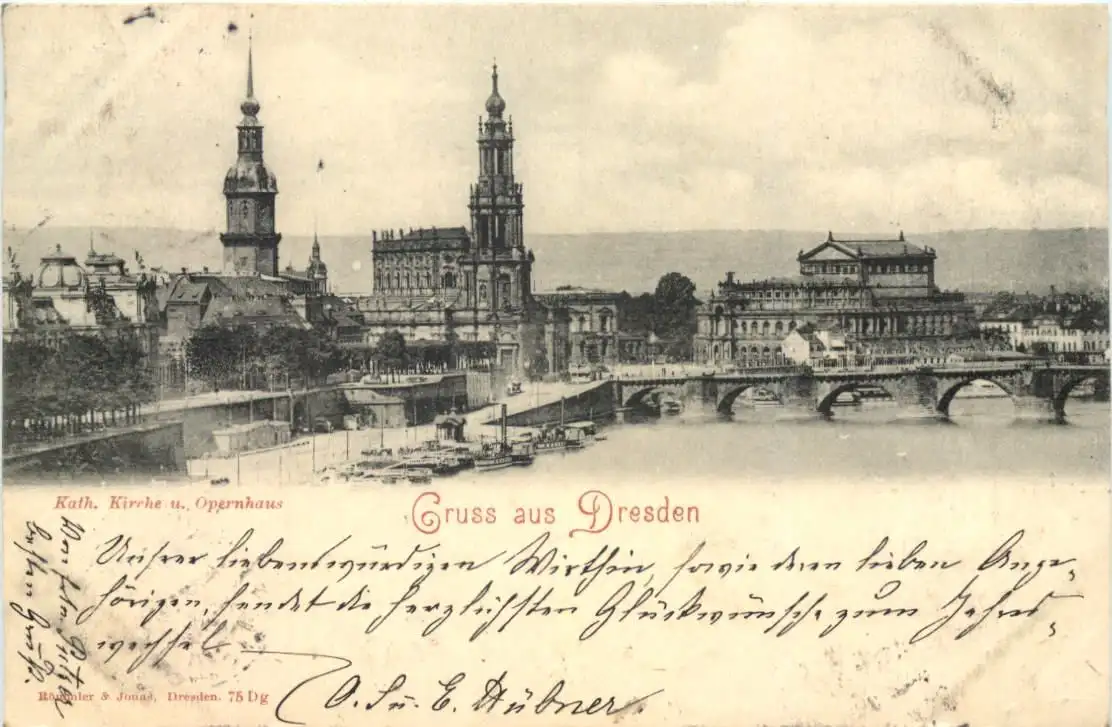 Kath. Kirche u. Opernhaus
Gruss aus Dresden
Unsrer liebenswürdigen Wirthin, sowie deren lieben Ange-
hörigen, sendet die herzlichsten Glückwünsche zum Jahres-
wechsel
O. u. E. Hübner.
besten Gruß.
Römmler & Jonas, Dresden. 75 Dg